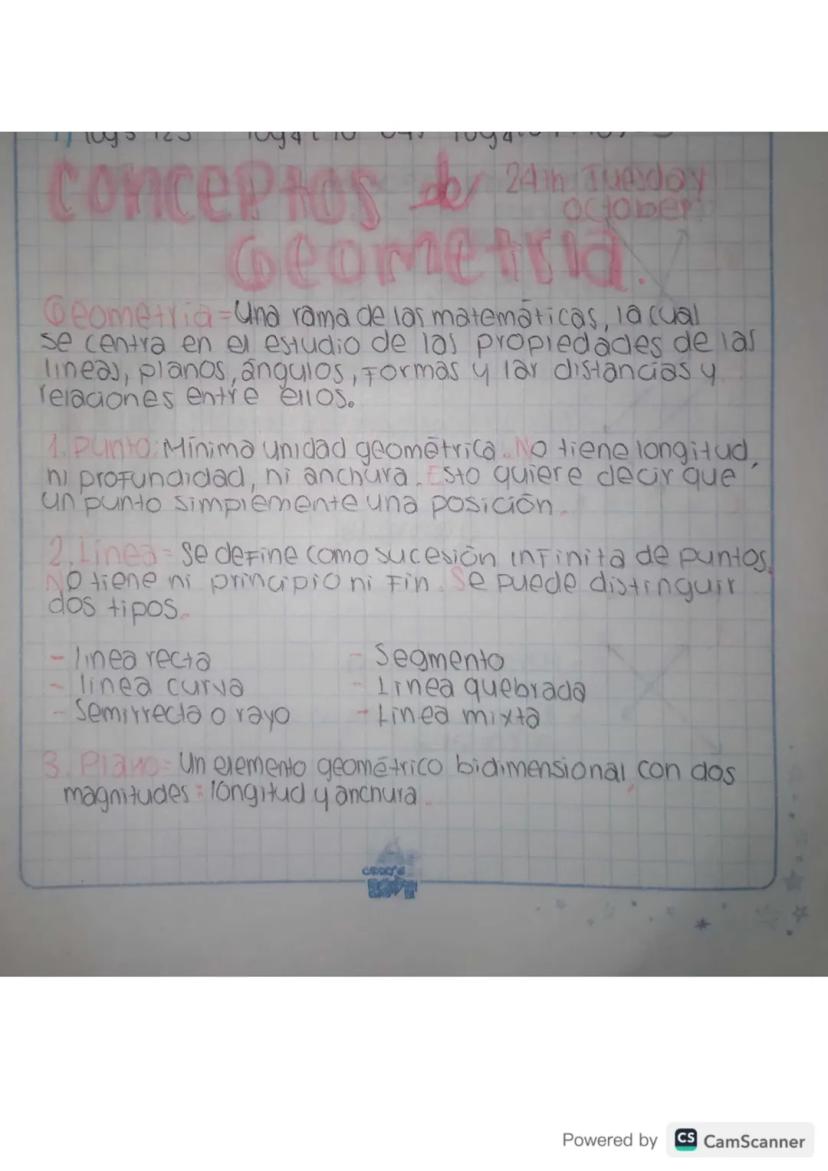 Conceptos de 24th Tuesday
october
Geometria.
Geometria = Una rama de las matemáticas, la cual
se centra en el estudio de las propiedades de las
lineas, planos, ángulos, Formas y lar distancias y
relaciones entre ellos.
1. Punto: Mínima unidad geométrica. No tiene longitud,
ni profundidad, ni anchura. Esto quiere decir que
un punto simplemente una posición.
2. Linea = Se define como sucesión infinita de puntos.
No tiene ni principio ni Fin. Se puede distinguir
dos tipos.
- linea recta
- linea curva
- Semirrecta o rayo
- Segmento
- Linea quebrada
- Linea mixta
3. Plano = Un elemento geométrico bidimensional, con dos
magnitudes: longitud y anchura.
Powered by CS CamScanner